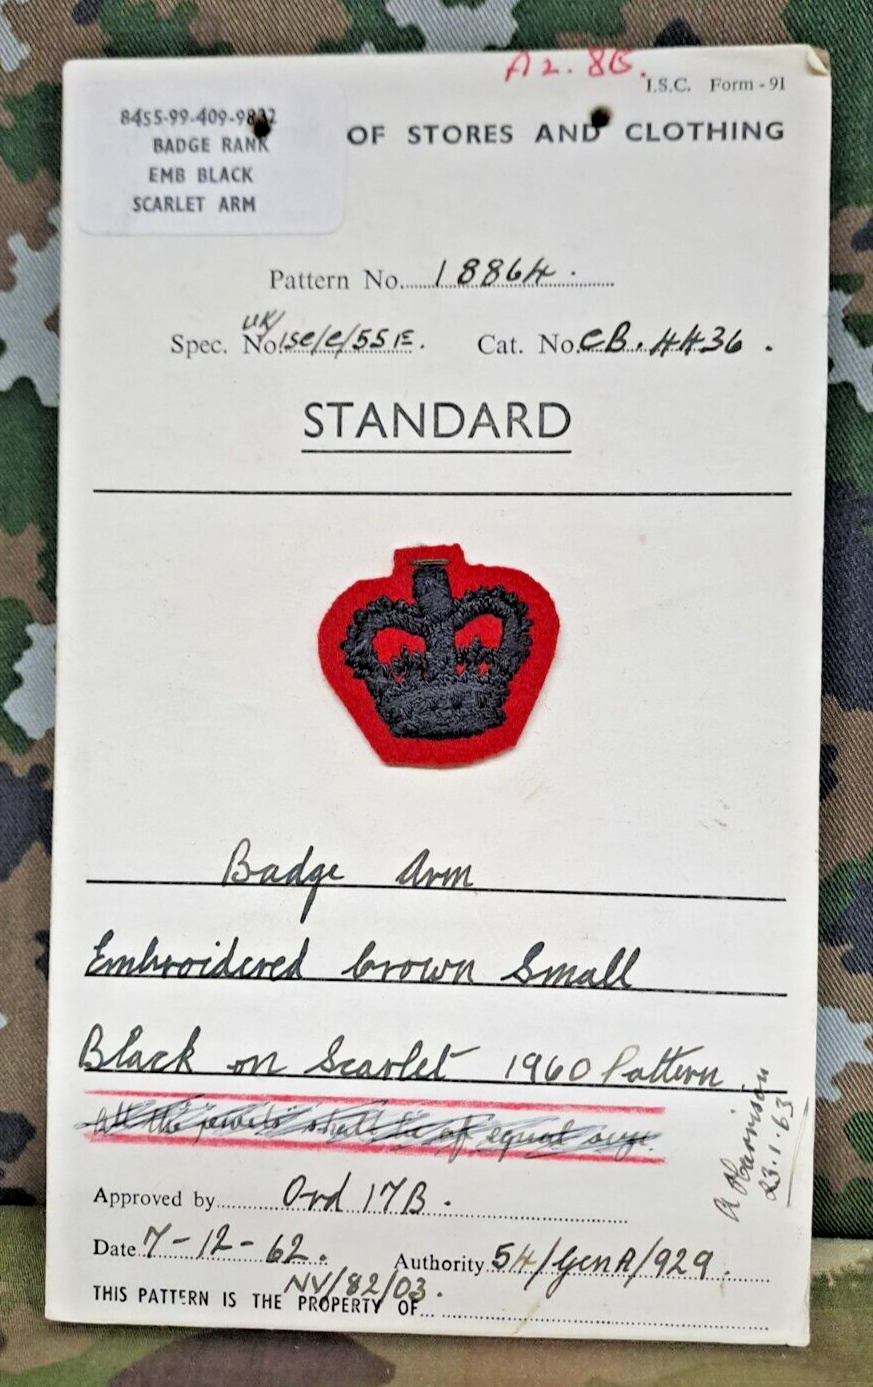 A2. 8B.
I.S.C. Form - 91
8455-99-409-9832
BADGE RANK
EMB BLACK
SCARLET ARM
OF STORES AND CLOTHING
Pattern No. 18864.
UK/
Spec. No. ISC/C/551E. Cat. No. CB. 4436.
STANDARD
Badge Arm
Embroidered Crown Small
Black on Scarlet 1960 Pattern
all the jewels shall be of equal size.
A Harrison
23.1.63
Approved by Ord 17B.
Date 7-12-62. Authority 54/Gen A/929.
NV/82/03.
THIS PATTERN IS THE PROPERTY OF